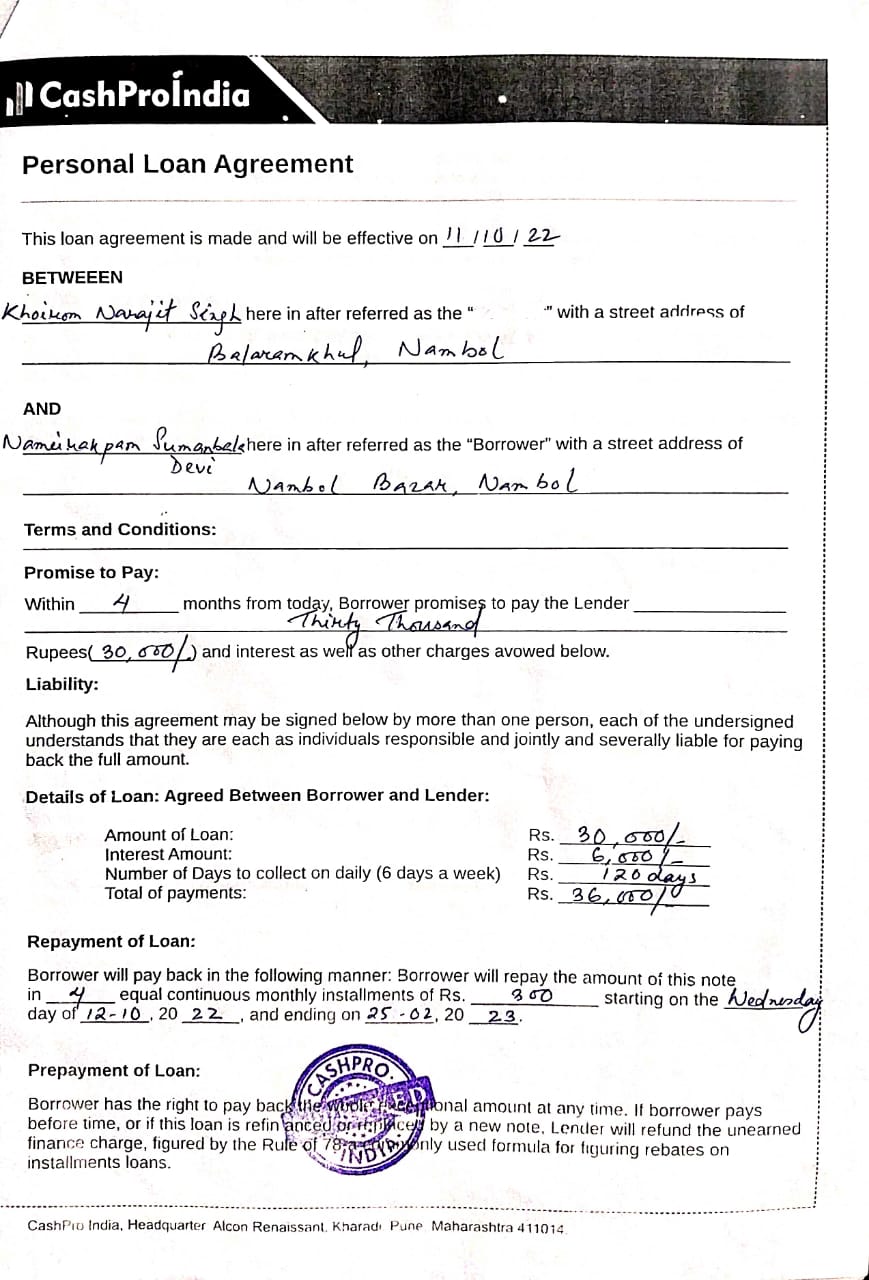 CashProIndia
Personal Loan Agreement
This loan agreement is made and will be effective on 11 / 10 / 22
BETWEEEN
Khoirom Narajit Singh here in after referred as the “ ” with a street address of
Balaramkhul, Nambol
AND
Nameirakpam Sumanbala here in after referred as the “Borrower” with a street address of
Devi
Nambol Bazar, Nambol
Terms and Conditions:
Promise to Pay:
Within 4 months from today, Borrower promises to pay the Lender
Thirty Thousand
Rupees( 30,000/- ) and interest as well as other charges avowed below.
Liability:
Although this agreement may be signed below by more than one person, each of the undersigned
understands that they are each as individuals responsible and jointly and severally liable for paying
back the full amount.
Details of Loan: Agreed Between Borrower and Lender:
Amount of Loan: Rs. 30,000/-
Interest Amount: Rs. 6,000/-
Number of Days to collect on daily (6 days a week) Rs. 120 days
Total of payments: Rs. 36,000/-
Repayment of Loan:
Borrower will pay back in the following manner: Borrower will repay the amount of this note
in 4 equal continuous monthly installments of Rs. 300 starting on the Wednesday
day of 12-10, 20 22, and ending on 25-02, 20 23.
Prepayment of Loan:
CASHPRO
INDIA
Borrower has the right to pay back the whole onal amount at any time. If borrower pays
before time, or if this loan is refinanced or by a new note, Lender will refund the unearned
finance charge, figured by the Rule of 78 only used formula for figuring rebates on
installments loans.
CashPro India, Headquarter Alcon Renaissant, Kharadi Pune Maharashtra 411014